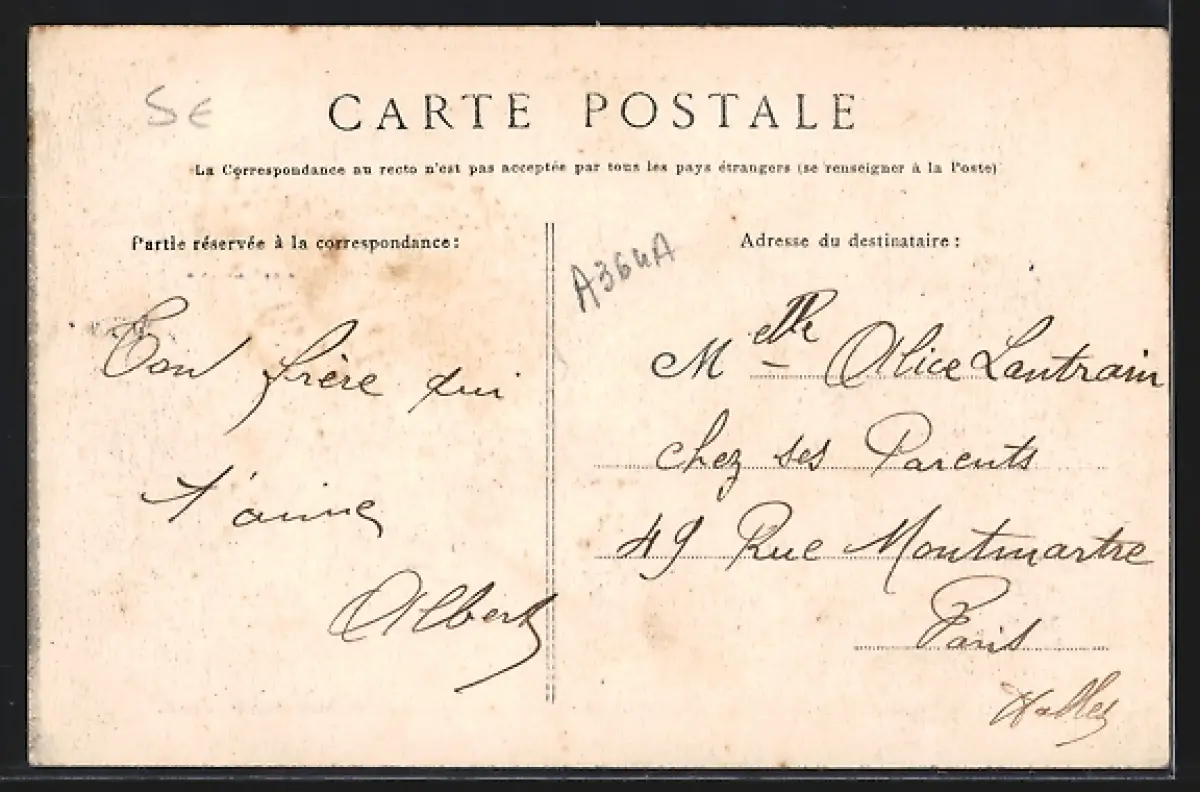 5€
CARTE POSTALE
La Correspondance au recto n'est pas acceptée par tous les pays étrangers (se renseigner à la Poste)
Partie réservée à la correspondance:
Ton frère qui
t'aime
Albert
A364A
Adresse du destinataire:
Melle Alice Lantrain
chez ses Parents
49 Rue Montmartre
Paris
Halles